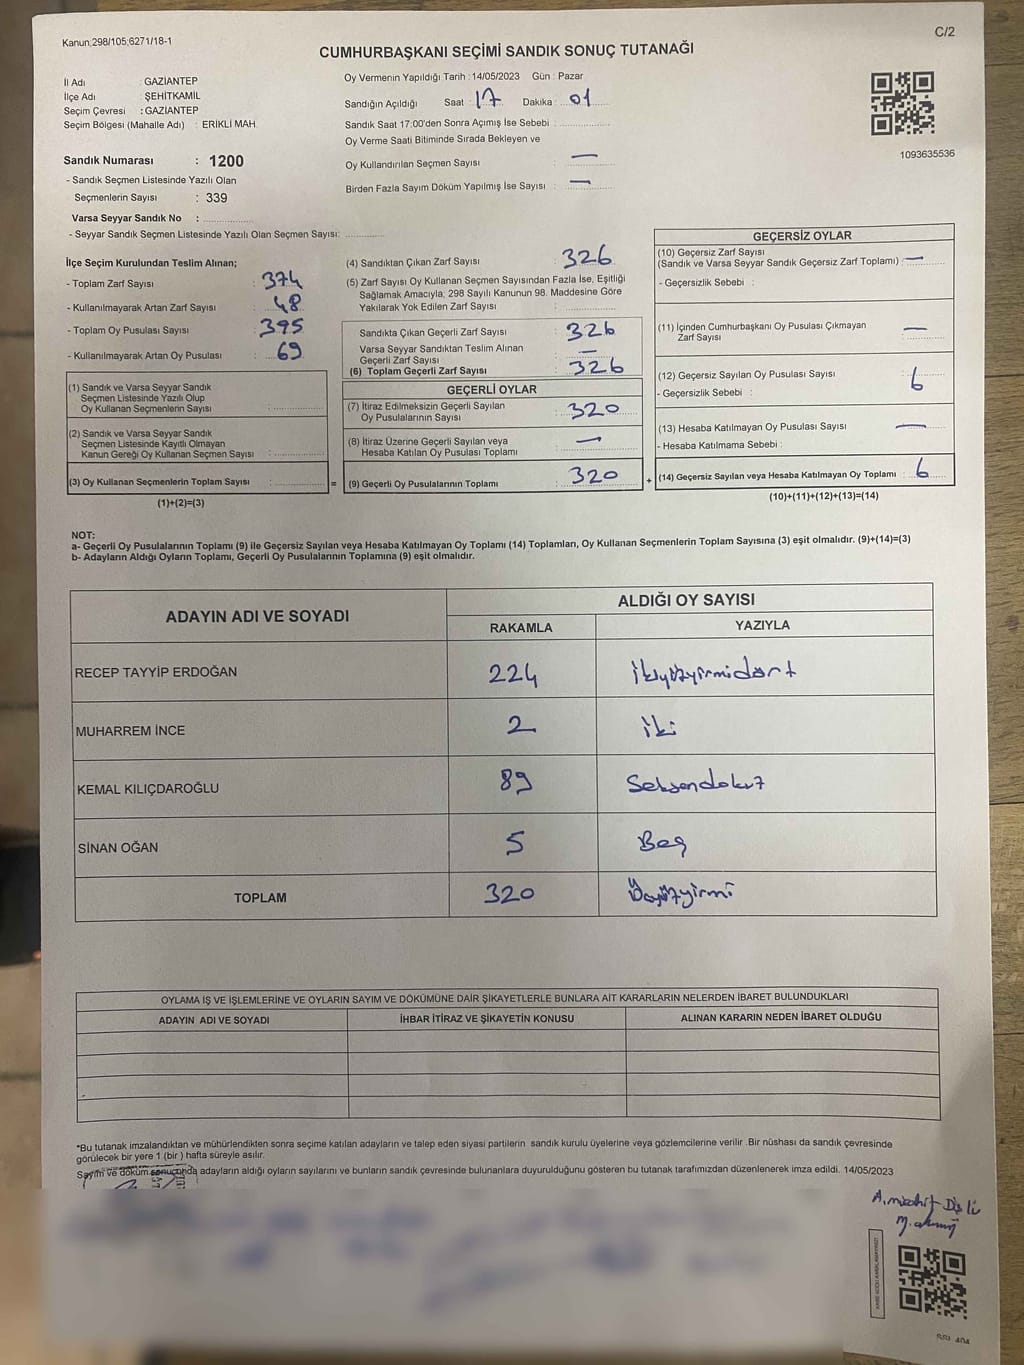 Kanun;298/105;6271/18-1
C/2
CUMHURBAŞKANI SEÇİMİ SANDIK SONUÇ TUTANAĞI
İl Adı : GAZİANTEP
İlçe Adı : ŞEHİTKAMİL
Seçim Çevresi : GAZİANTEP
Seçim Bölgesi (Mahalle Adı) : ERİKLİ MAH.
Sandık Numarası : 1200
- Sandık Seçmen Listesinde Yazılı Olan
Seçmenlerin Sayısı : 339
Varsa Seyyar Sandık No :
- Seyyar Sandık Seçmen Listesinde Yazılı Olan Seçmen Sayısı:
Oy Vermenin Yapıldığı Tarih :14/05/2023 Gün : Pazar
Sandığın Açıldığı Saat : 17 Dakika : 01
Sandık Saat 17:00'den Sonra Açımış İse Sebebi :
Oy Verme Saati Bitiminde Sırada Bekleyen ve
Oy Kullandırılan Seçmen Sayısı : —
Birden Fazla Sayım Döküm Yapılmış İse Sayısı : —
1093635536
İlçe Seçim Kurulundan Teslim Alınan;
- Toplam Zarf Sayısı : 374
- Kullanılmayarak Artan Zarf Sayısı : 48
- Toplam Oy Pusulası Sayısı : 395
- Kullanılmayarak Artan Oy Pusulası : 69
(1) Sandık ve Varsa Seyyar Sandık
Seçmen Listesinde Yazılı Olup
Oy Kullanan Seçmenlerin Sayısı :
(2) Sandık ve Varsa Seyyar Sandık
Seçmen Listesinde Kayıtlı Olmayan
Kanun Gereği Oy Kullanan Seçmen Sayısı :
(3) Oy Kullanan Seçmenlerin Toplam Sayısı : =
(1)+(2)=(3)
(4) Sandıktan Çıkan Zarf Sayısı : 326
(5) Zarf Sayısı Oy Kullanan Seçmen Sayısından Fazla İse, Eşitliği
Sağlamak Amacıyla; 298 Sayılı Kanunun 98. Maddesine Göre
Yakılarak Yok Edilen Zarf Sayısı :
Sandıkta Çıkan Geçerli Zarf Sayısı : 326
Varsa Seyyar Sandıktan Teslim Alınan
Geçerli Zarf Sayısı : —
(6) Toplam Geçerli Zarf Sayısı : 326
GEÇERLİ OYLAR
(7) İtiraz Edilmeksizin Geçerli Sayılan
Oy Pusulalarının Sayısı : 320
(8) İtiraz Üzerine Geçerli Sayılan veya
Hesaba Katılan Oy Pusulası Toplamı : —
(9) Geçerli Oy Pusulalarının Toplamı : 320 +
GEÇERSİZ OYLAR
(10) Geçersiz Zarf Sayısı
(Sandık ve Varsa Seyyar Sandık Geçersiz Zarf Toplamı) : —
- Geçersizlik Sebebi :
(11) İçinden Cumhurbaşkanı Oy Pusulası Çıkmayan
Zarf Sayısı —
(12) Geçersiz Sayılan Oy Pusulası Sayısı : 6
- Geçersizlik Sebebi :
(13) Hesaba Katılmayan Oy Pusulası Sayısı : —
- Hesaba Katılmama Sebebi :
(14) Geçersiz Sayılan veya Hesaba Katılmayan Oy Toplamı : 6
(10)+(11)+(12)+(13)=(14)
NOT:
a- Geçerli Oy Pusulalarının Toplamı (9) ile Geçersiz Sayılan veya Hesaba Katılmayan Oy Toplamı (14) Toplamları, Oy Kullanan Seçmenlerin Toplam Sayısına (3) eşit olmalıdır. (9)+(14)=(3)
b- Adayların Aldığı Oyların Toplamı, Geçerli Oy Pusulalarının Toplamına (9) eşit olmalıdır.
ADAYIN ADI VE SOYADI ALDIĞI OY SAYISI
RAKAMLA YAZIYLA
RECEP TAYYİP ERDOĞAN 224 İkiyüzyirmidört
MUHARREM İNCE 2 İki
KEMAL KILIÇDAROĞLU 89 Seksendokuz
SİNAN OĞAN 5 Beş
TOPLAM 320 Üçyüzyirmi
OYLAMA İŞ VE İŞLEMLERİNE VE OYLARIN SAYIM VE DÖKÜMÜNE DAİR ŞİKAYETLERLE BUNLARA AİT KARARLARIN NELERDEN İBARET BULUNDUKLARI
ADAYIN ADI VE SOYADI İHBAR İTİRAZ VE ŞİKAYETİN KONUSU ALINAN KARARIN NEDEN İBARET OLDUĞU
*Bu tutanak imzalandıktan ve mühürlendikten sonra seçime katılan adayların ve talep eden siyasi partilerin sandık kurulu üyelerine veya gözlemcilerine verilir .Bir nüshası da sandık çevresinde
görülecek bir yere 1 (bir ) hafta süreyle asılır.
Sayım ve döküm sonucunda adayların aldığı oyların sayılarını ve bunların sandık çevresinde bulunanlara duyurulduğunu gösteren bu tutanak tarafımızdan düzenlenerek imza edildi. 14/05/2023